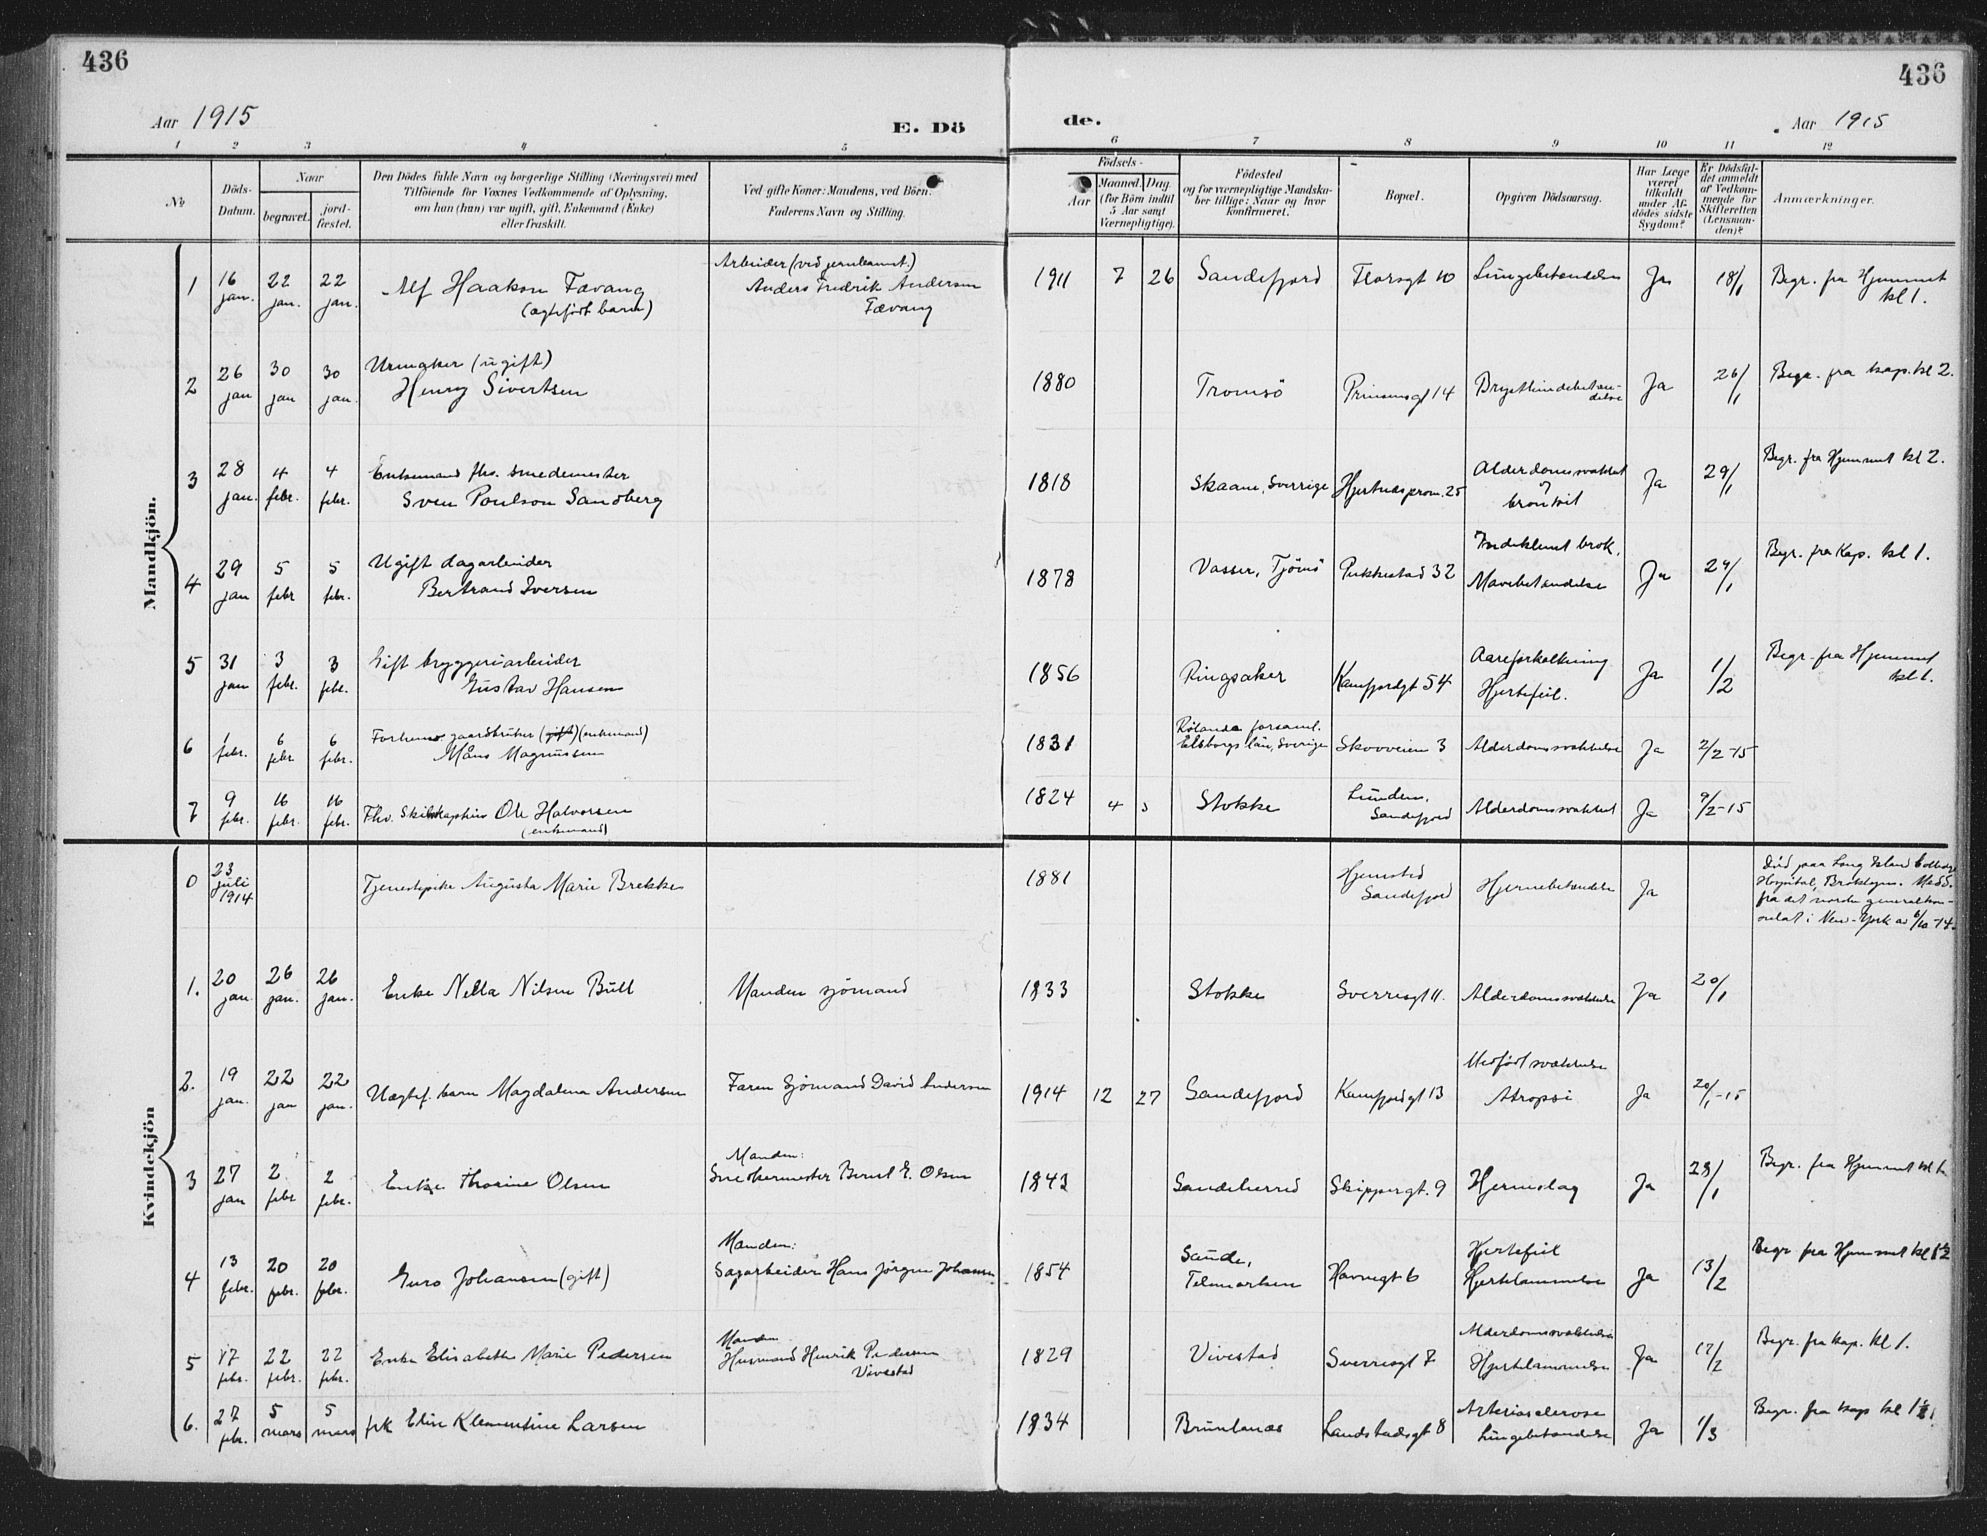 436
Aar 1915
E. Dö
1 2 3 4 5
No
Döds-Datum.
Naar
begravet.
jord-fæstet.
Den Dödes fulde Navn og borgerlige Stilling (Næringsvei) med
Tilföiende for Voxnes Vedkommende af Oplysning,
om han (hun) var ugift, gift, Enkemand (Enke)
eller fraskilt.
Ved gifte Koner: Mandens, ved Börn:
Faderens Navn og Stilling.
Mandkjön.
1 16 jan. 22 jan. 22 jan. Alf Haakon Fævang
(ægtefödt barn)
Arbeider (ved jernbanen)
Anders Fredrik Andersen
Fævang
2 26 jan 30 jan 30 jan. Urmaker (ugift)
Henry Sivertsen
3 28 jan. 4 febr. 4 febr. Enkemand fhv. smedemester
Sven Poulson Sandberg
4 29 jan 5 febr 5 febr. Ugift dagarbeider
Bertrand Iversen
5 31 jan 3 febr. 3 febr. Gift bryggeriarbeider
Gustav Hansen
6 1 febr. 6 febr 6 febr. gaardbruker (gift) (enkemand)
Måns Magnussen
7 9 febr. 16 febr. 16 febr. Fhv. Skibskaptein Ole Halvorsen
(enkemand)
Kvindekjön
0 23 juli 1914 Tjenestepike Augusta Marie Brekke
1. 20 jan. 26 jan. 26 jan. Enke Nella Nilsen Bull Manden sjömand
2. 19 jan. 22 jan 22 jan. Uægtef. barn Magdalena Andersen Faren Sjömand David Andersen
3 27 jan 2 febr 2 febr. Enke Thorine Olsen
Manden:
Snedkermester Bernt E. Olsen
4 13 febr. 20 febr. 20 febr. Guro Johansen (gift)
Manden:
Sagarbeider Hans Jörgen Johansen
5 17 febr. 22 febr. 22 febr. Enke Elisabeth Marie Pedersen
Manden
Husmand Henrik Pedersen
Vivestad
6. 27 febr. 5 mars 5 mars frk Elise Klementine Larsen
436
de.
Aar 1915
6 7 8 9 10 11 12
Födsels-
Aar
Maaned. Dag.
(for Börn indtil
5 Aar samt
Værnepligtige).
Födested
og for værnepligtige Mandska-
ber tillige: Naar og hvor
konfirmeret.
Bopæl.
Opgiven Dödsaarsag.
Har Læge
været
tilkaldt
under Af-
dödes sidste
Sygdom?
Er Dödsfal-
det anmeldt
af Vedkom-
mende for
Skifteretten
(Lensman-
den)?
Anmærkninger.
1911 7 26 Sandefjord Thorsgt 10 Lungebetændelse Ja 18/1 Begr. fra Hjemmet
kl 1.
1880 Tromsö Prinsensgt 14 Brysthindebetæn-
delse Ja 26/1 Begr. fra kap. kl 2.
1818 Skaane, Sverrige Hjertnæsprom. 25 Alderdomssvakhet
og
bronkit Ja 29/1 Begr. fra Hjemmet kl 2.
1878 Vasser, Tjömö Pukkestad 32 Indeklemt brok,
Mavebetændelse Ja 29/1 Begr. fra Kap. kl 1.
1856 Ringsaker Kamfjordgt 54 Aareforkalkning
Hjertefeil. Ja 1/2 Begr. fra Hjemmet
kl 1.
1831 forsaml.
Elsborgs län, Sverige Skovveien 3 Alderdomssvakhet Ja 2/2-15
1824 4 3 Stokke Lunden,
Sandefjord Alderdomssvakhet Ja 9/2-15
1881 Hjemsted
Sandefjord Hjernebetændelse Ja Död paa Long Island College
Hospital, Broklyn. Medd.
fra det norske generalkon-
sulat i New-York av 6/10-14.
1833 Stokke Sverresgt 11. Alderdomssvakhet Ja 20/1
1914 12 27 Sandefjord Kamfjordgt 13 Medfödt svakhet
Atropsi Ja 20/1-15
1843 Sandeherred Skippergt. 9 Hjerneslag Ja 28/1 Begr. fra Hjemmet kl 1
1854 Saude,
Telemarken Havnegt 6 Hjertefeil
Hjertelammelse Ja 13/2 Begr fra Hjemmet kl 1½
1829 Vivestad Sverresgt 7 Alderdomssvakhet
Hjertelammelse Ja 17/2 Begr. fra kap. kl 1.
1834 Brunlanæs Landstadsgt 8 Arteriosclerose
Lungebetændelse Ja 1/3 Begr. fra kap kl 1½